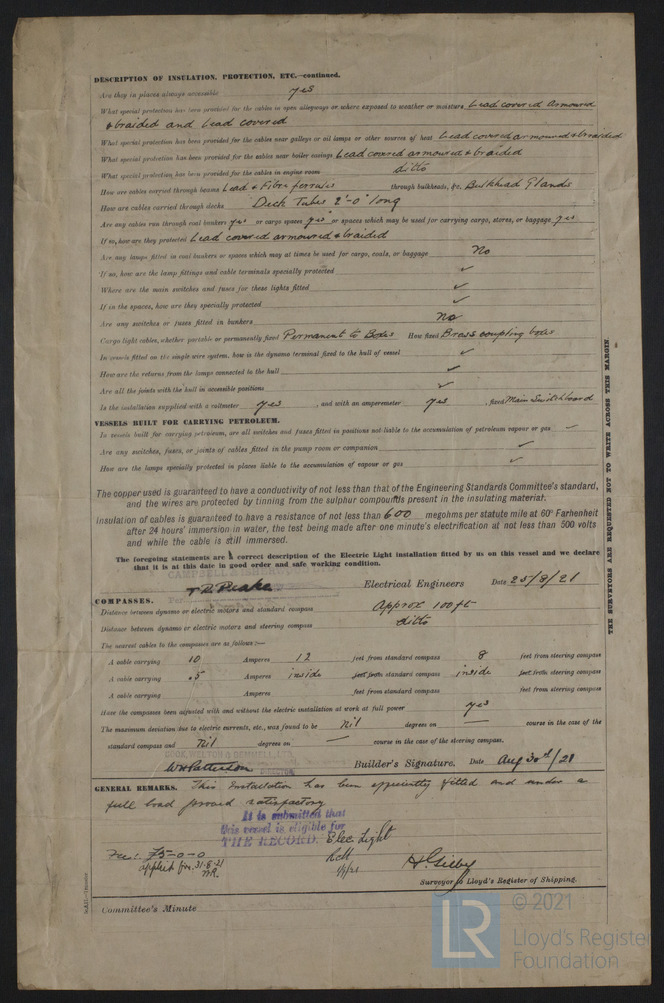 DESCRIPTION OF INSULATION, PROTECTION, ETC.—continued.
Are they in places always accessible yes
What special protection has been provided for the cables in open alleyways or where exposed to weather or moisture Lead covered Armoured
& braided and Lead covered
What special protection has been provided for the cables near galleys or oil lamps or other sources of heat Lead covered armoured & braided
What special protection has been provided for the cables near boiler casings Lead covered armoured & braided
What special protection has been provided for the cables in engine room ditto
How are cables carried through beams Lead & Fibre ferrules through bulkheads, &c. Bulkhead Glands
How are cables carried through decks Deck Tubes 2'-0" long
Are any cables run through coal bunkers yes or cargo spaces yes or spaces which may be used for carrying cargo, stores, or baggage yes
If so, how are they protected Lead covered armoured & braided
Are any lamps fitted in coal bunkers or spaces which may at times be used for cargo, coals, or baggage No
If so, how are the lamp fittings and cable terminals specially protected ✓
Where are the main switches and fuses for these lights fitted ✓
If in the spaces, how are they specially protected ✓
Are any switches or fuses fitted in bunkers No
Cargo light cables, whether portable or permanently fixed Permanent to Boxes How fixed Brass coupling boxes
In vessels fitted on the single wire system, how is the dynamo terminal fixed to the hull of vessel ✓
How are the returns from the lamps connected to the hull ✓
Are all the joints with the hull in accessible positions ✓
Is the installation supplied with a voltmeter yes, and with an amperemeter yes, fixed Main Switchboard
VESSELS BUILT FOR CARRYING PETROLEUM.
In vessels built for carrying petroleum, are all switches and fuses fitted in positions not liable to the accumulation of petroleum vapour or gas ✓
Are any switches, fuses, or joints of cables fitted in the pump room or companion ✓
How are the lamps specially protected in places liable to the accumulation of vapour or gas ✓
The copper used is guaranteed to have a conductivity of not less than that of the Engineering Standards Committee's standard,
and the wires are protected by tinning from the sulphur compounds present in the insulating material.
Insulation of cables is guaranteed to have a resistance of not less than 600 megohms per statute mile at 60° Farhenheit
after 24 hours' immersion in water, the test being made after one minute's electrification at not less than 500 volts
and while the cable is still immersed.
The foregoing statements are a correct description of the Electric Light installation fitted by us on this vessel and we declare
that it is at this date in good order and safe working condition.
Electrical Engineers Date 25/8/21
COMPASSES.
Distance between dynamo or electric motors and standard compass Approx 100 ft
Distance between dynamo or electric motors and steering compass ditto
The nearest cables to the compasses are as follows:—
A cable carrying 10 Amperes 12 feet from standard compass 8 feet from steering compass
A cable carrying .5 Amperes inside feet from standard compass inside feet from steering compass
A cable carrying Amperes feet from standard compass feet from steering compass
Have the compasses been adjusted with and without the electric installation at work at full power yes
The maximum deviation due to electric currents, etc., was found to be Nil degrees on — course in the case of the
standard compass and Nil degrees on — course in the case of the steering compass.
COOK, WELTON & GEMMELL, LTD.
DIRECTOR
W H Patterson Builder's Signature. Date Aug 30th/21
GENERAL REMARKS. This Installation has been efficiently fitted and under a
full load proved satisfactory
It is submitted that
this vessel is eligible for
THE RECORD. Elec. Light
Fee: £5-0-0
applied for. 31-8-21
Surveyor to Lloyd's Register of Shipping.
Committee's Minute
THE SURVEYORS ARE REQUESTED NOT TO WRITE ACROSS THIS MARGIN.
LR
© 2021
Lloyd's Register
Foundation